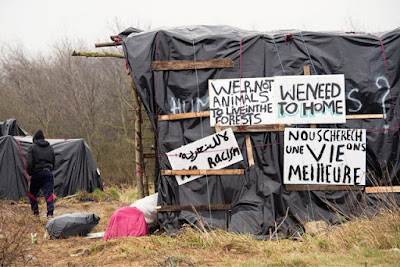 WE,R NOT
ANIMAL,S
TO LIVE IN THE
FORESTS
WE NEED
TO HOME
?
RACISM
NOUS CHERECH
ONS
UNE VIE
MEILLEURE